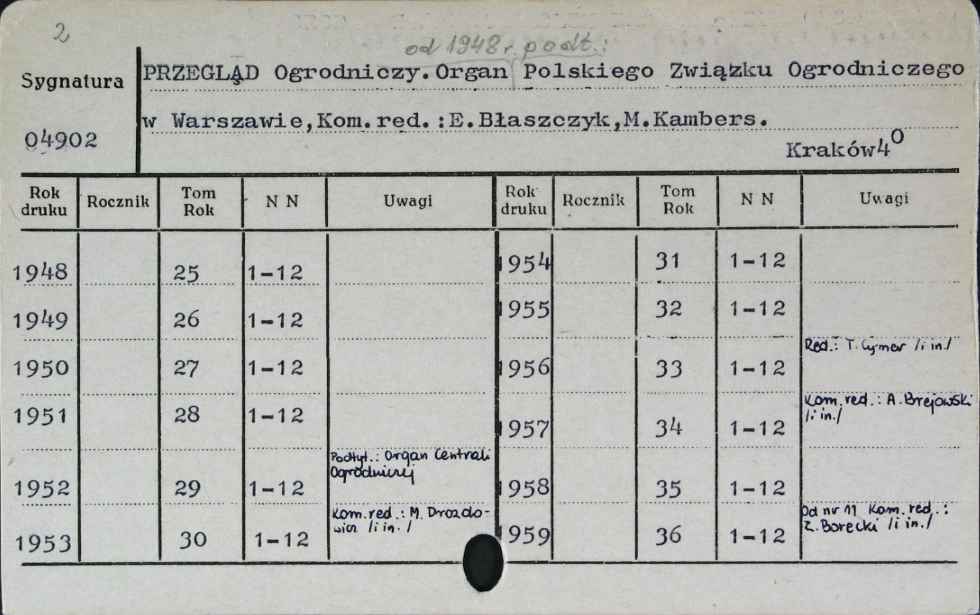 2
od 1948 r. podt.:
Sygnatura
04902
PRZEGLĄD Ogrodniczy. Organ Polskiego Związku Ogrodniczego
w Warszawie, Kom. red. : E. Błaszczyk, M. Kambers.
Kraków 4⁰
Rok druku | Rocznik | Tom Rok | N N | Uwagi | Rok druku | Rocznik | Tom Rok | N N | Uwagi
1948 | | 25 | 1-12 | | 1954 | | 31 | 1-12 |
1949 | | 26 | 1-12 | | 1955 | | 32 | 1-12 |
1950 | | 27 | 1-12 | | 1956 | | 33 | 1-12 | Red.: T. Cymer /i in./
1951 | | 28 | 1-12 | | 1957 | | 34 | 1-12 | Kom. red.: A. Brejowski /i in./
1952 | | 29 | 1-12 | Podtyt.: Organ Centrali Ogrodniczej | 1958 | | 35 | 1-12 |
1953 | | 30 | 1-12 | Kom. red.: M. Drozdowicz /i in./ | 1959 | | 36 | 1-12 | Od nr 11 Kom. red.: Z. Borecki /i in./